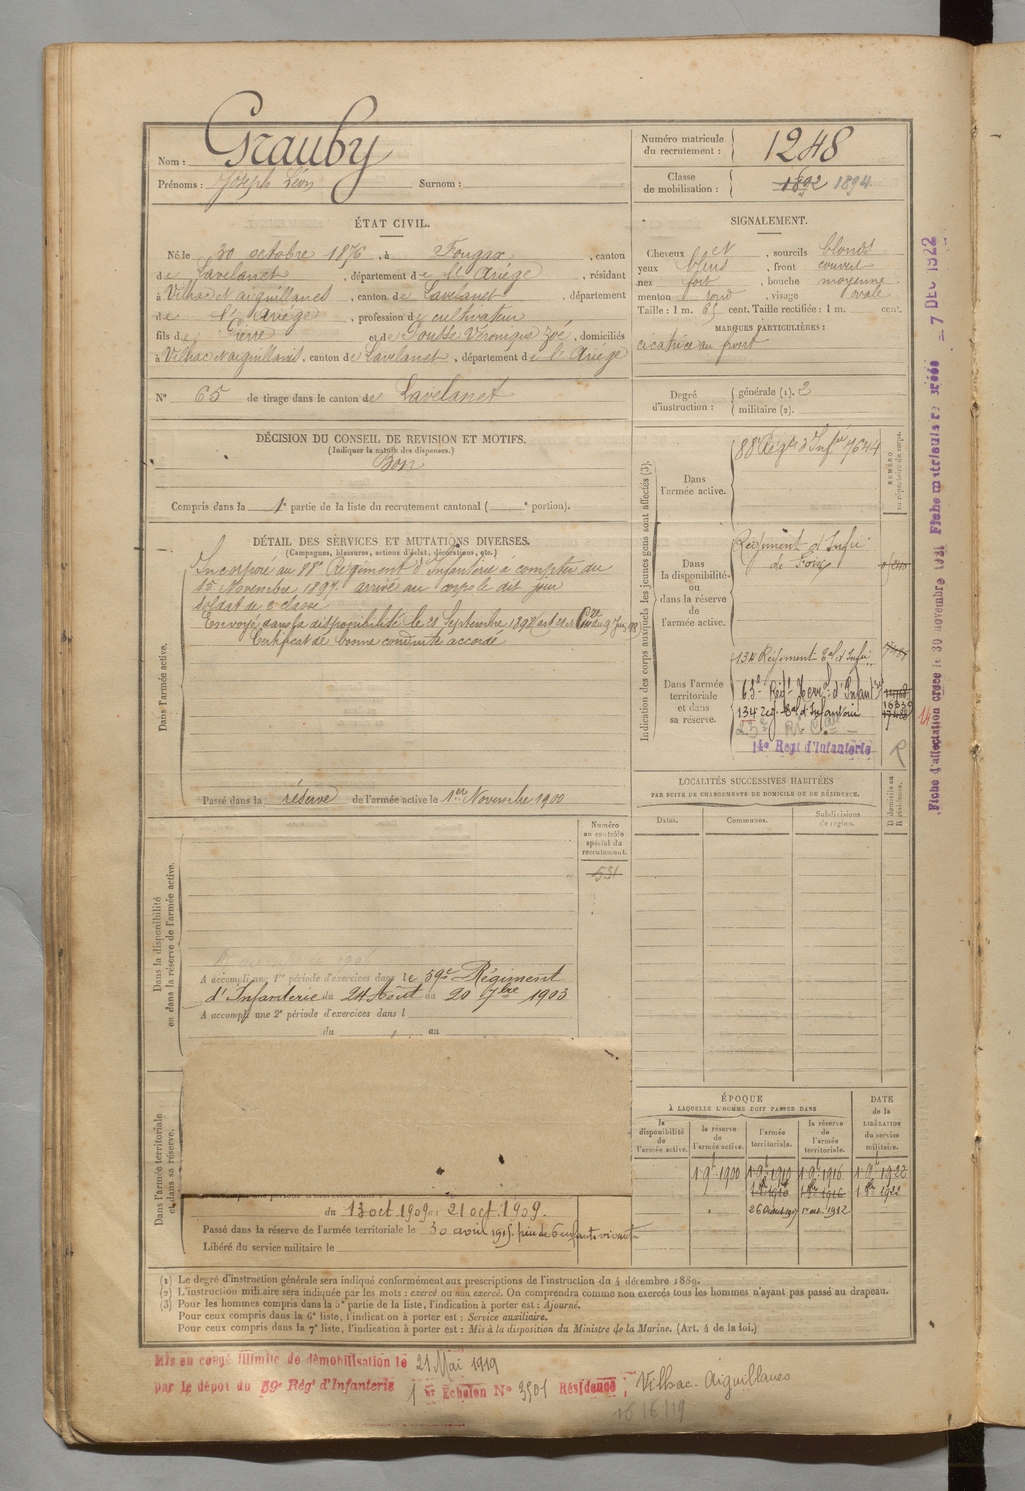 Nom : Grauby
Prénoms : Joseph Léon Surnom :
Numéro matricule du recrutement : 1248
Classe de mobilisation : 1892 1894
ÉTAT CIVIL.
Né le 30 octobre 1876, à Fougax, canton
de Lavelanet, département de l'Ariège, résidant
à Vilhac et aiguillanes, canton de Lavelanet, département
de l'Ariège, profession de cultivateur
fils de Pierre et de Véronique Zoé, domiciliés
à Vilhac et aiguillanes, canton de Lavelanet, département de l'Ariège
N° 65 de tirage dans le canton de Lavelanet
SIGNALEMENT.
Cheveux et, sourcils blonds
yeux bleus, front couvert
nez fort, bouche moyenne
menton rond, visage ovale
Taille : 1 m. 65 cent. Taille rectifiée : 1 m. cent.
MARQUES PARTICULIÈRES :
cicatrice au front
Degré d'instruction :
générale (1). 2
militaire (2).
DÉCISION DU CONSEIL DE REVISION ET MOTIFS.
(Indiquer la nature des dispenses.)
Bon
Compris dans la 1e partie de la liste du recrutement cantonal ( e portion).
DÉTAIL DES SERVICES ET MUTATIONS DIVERSES.
(Campagnes, blessures, actions d'éclat, décorations, etc.)
Dans l'armée active.
Incorporé au 88e Régiment d'Infanterie à compter du
15 Novembre 1897 arrivé au corps le dit jour
soldat de 2e classe
Envoyé dans la disponibilité le 21 Septembre 1898
Certificat de bonne conduite accordé
Passé dans la réserve de l'armée active le 1er Novembre 1900
Indication des corps auxquels les jeunes gens sont affectés (3).
NUMÉRO au répertoire du corps.
Dans l'armée active.
88e Régt d'Infrie 7644
Dans la disponibilité ou dans la réserve de l'armée active.
Régiment d'Infie
de Foix
Dans l'armée territoriale et dans sa réserve.
134 Régiment Tal d'Infie
63e Régt Terr. d'Infant
134 Reg. Tal d'Infanterie
14e Régt d'Infanterie
R
LOCALITÉS SUCCESSIVES HABITÉES
PAR SUITE DE CHANGEMENTS DE DOMICILE OU DE RÉSIDENCE.
Dates. Communes. Subdivisions de région. D domicile ou R résidence.
Dans la disponibilité ou dans la réserve de l'armée active.
Numéro au contrôle spécial du recrutement.
531
A accompli une 1re période d'exercices dans le 59e Régiment
d'Infanterie du 24 Août au 20 7bre 1903
A accompli une 2e période d'exercices dans l
du au
Dans l'armée territoriale et dans sa réserve.
du 13 oct 1909 au 21 oct. 1909.
Passé dans la réserve de l'armée territoriale le 30 avril 1915. père de 6 enfants vivants
Libéré du service militaire le
ÉPOQUE
À LAQUELLE L'HOMME DOIT PASSER DANS
la disponibilité de l'armée active. la réserve de l'armée active. l'armée territoriale. la réserve de l'armée territoriale.
DATE de la LIBÉRATION du service militaire.
(1) Le degré d'instruction générale sera indiqué conformément aux prescriptions de l'instruction du 4 décembre 1889.
(2) L'instruction militaire sera indiquée par les mots : exercé ou non exercé. On comprendra comme non exercés tous les hommes n'ayant pas passé au drapeau.
(3) Pour les hommes compris dans la 5e partie de la liste, l'indication à porter est : Ajourné.
Pour ceux compris dans la 6e liste, l'indication à porter est : Service auxiliaire.
Pour ceux compris dans la 7e liste, l'indication à porter est : Mis à la disposition du Ministre de la Marine. (Art. 4 de la loi.)
Mis en congé illimité de démobilisation le 21 Mai 1919
par le dépôt du 59e Régt d'Infanterie 1er Échelon N° 3501 Résidence : Vilhac-Aiguillanes
Fiche d'affectation créée le 30 novembre 1921 Fiche matricule recréée - 7 DEC 1922